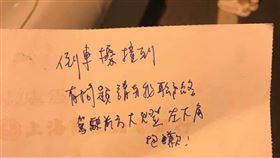 倒車擦撞到
有問題請與我聯絡
駕駛前方大燈左下角
抱歉!